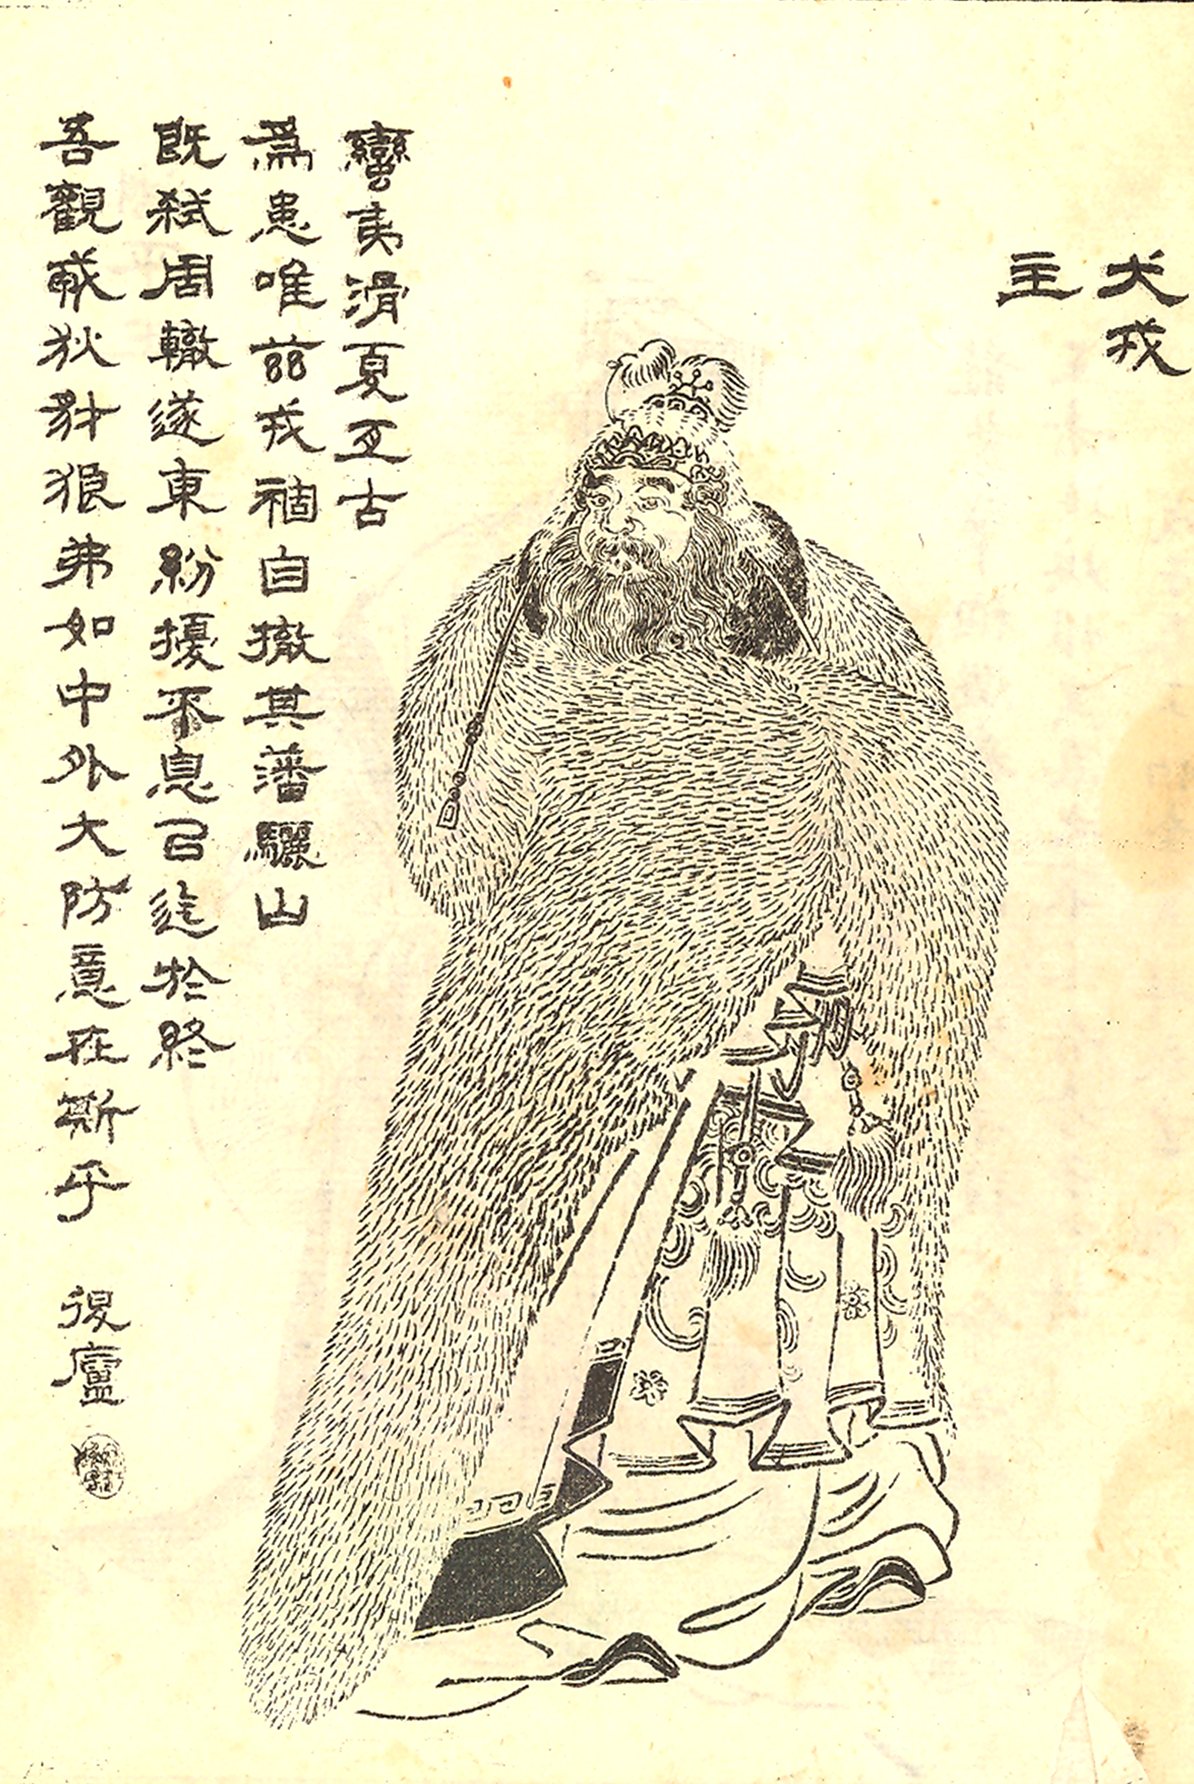 犬戎
主
蠻夷滑夏亙古
爲患唯茲戎禍自撤其藩驪山
既弒周轍遂東紛擾不息已迄於終
吾觀戎狄豺狼弗如中外大防意在斯乎
復廬